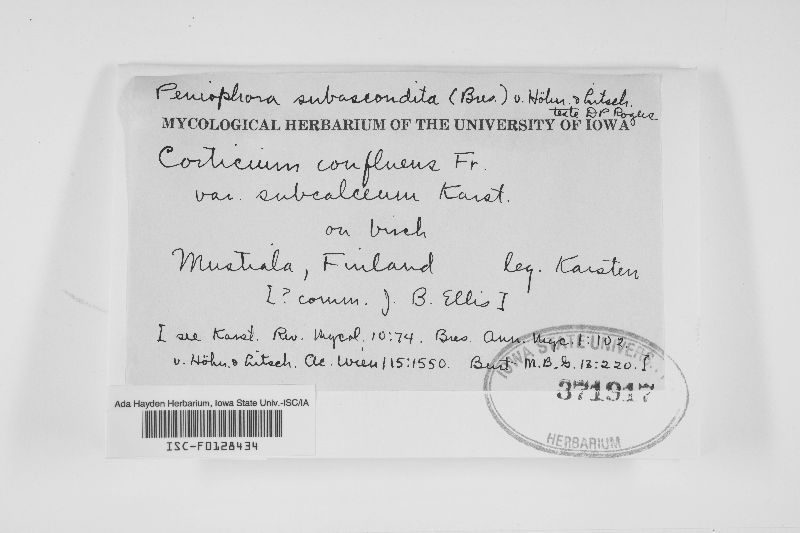 Peniophora subascondita (Bres.) v. Höhn. & Litsch.
teste D P Rogers
MYCOLOGICAL HERBARIUM OF THE UNIVERSITY OF IOWA
Corticium confluens Fr.
var. subcalceum Karst.
on birch
Mustiala, Finland leg. Karsten
[? comm. J. B. Ellis]
[ see Karst. Rev. Mycol. 10:74. Bres. Ann. Myc. 1:102.
v. Höhn. & Litsch. Ac. Wien 115:1550. Burt M.B.G. 13:220.]
IOWA STATE UNIVERSITY
371917
HERBARIUM
Ada Hayden Herbarium, Iowa State Univ.-ISC/IA
ISC-F0128434